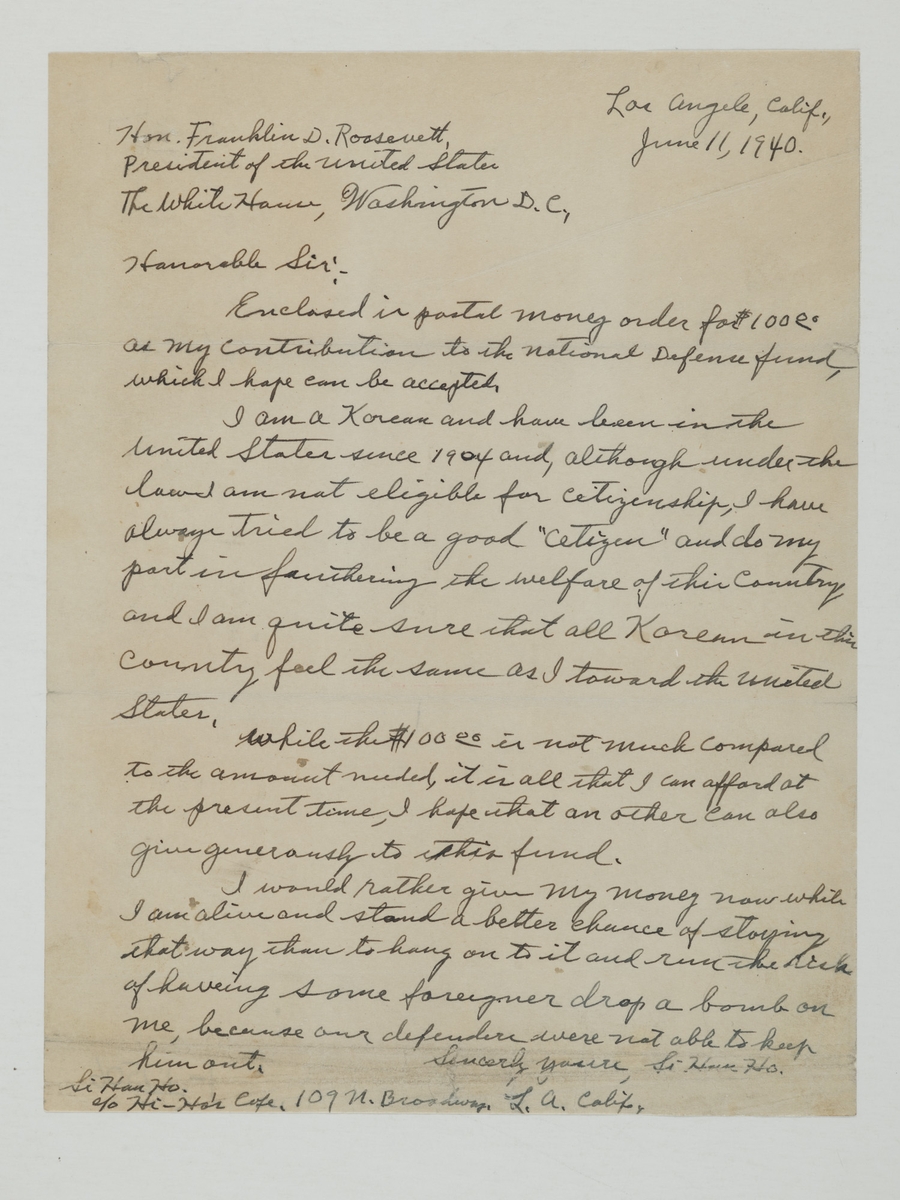 Los Angele, Calif.,
June 11, 1940.
Hon. Franklin D. Roosevett,
President of the United States
The White House, Washington D.C.,
Honorable Sir:-
Enclosed is postal money order for $100 00
as my contribution to the national Defense fund,
which I hope can be accepted.
I am a Korean and have been in the
United States since 1904 and, although under the
law I am not eligible for cetizenship, I have
always tried to be a good "cetizen" and do my
part in furthering the welfare of this Country
and I am quite sure that all Korean in this
Country feel the same as I toward the United
States.
While the $100 00 is not much compared
to the amount needed, it is all that I can afford at
the present time, I hope that an other can also
give generously to this fund.
I would rather give my money now while
I am alive and stand a better chance of staying
that way than to hang on to it and run the risk
of haveing some foreigner drop a bomb on
me, because our defenders were not able to keep
him out.
Sincerly yours, Si Han Ho.
Si Han Ho.
c/o Hi-Ho's Cafe. 109 N. Broadway. L. A. Calif.